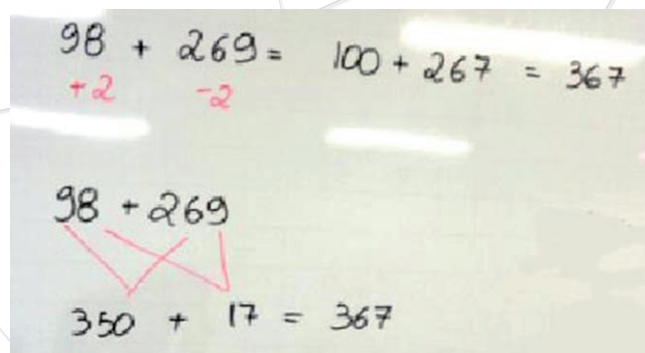 98 + 269 = 100 + 267 = 367
+2 -2
98 + 269
350 + 17 = 367